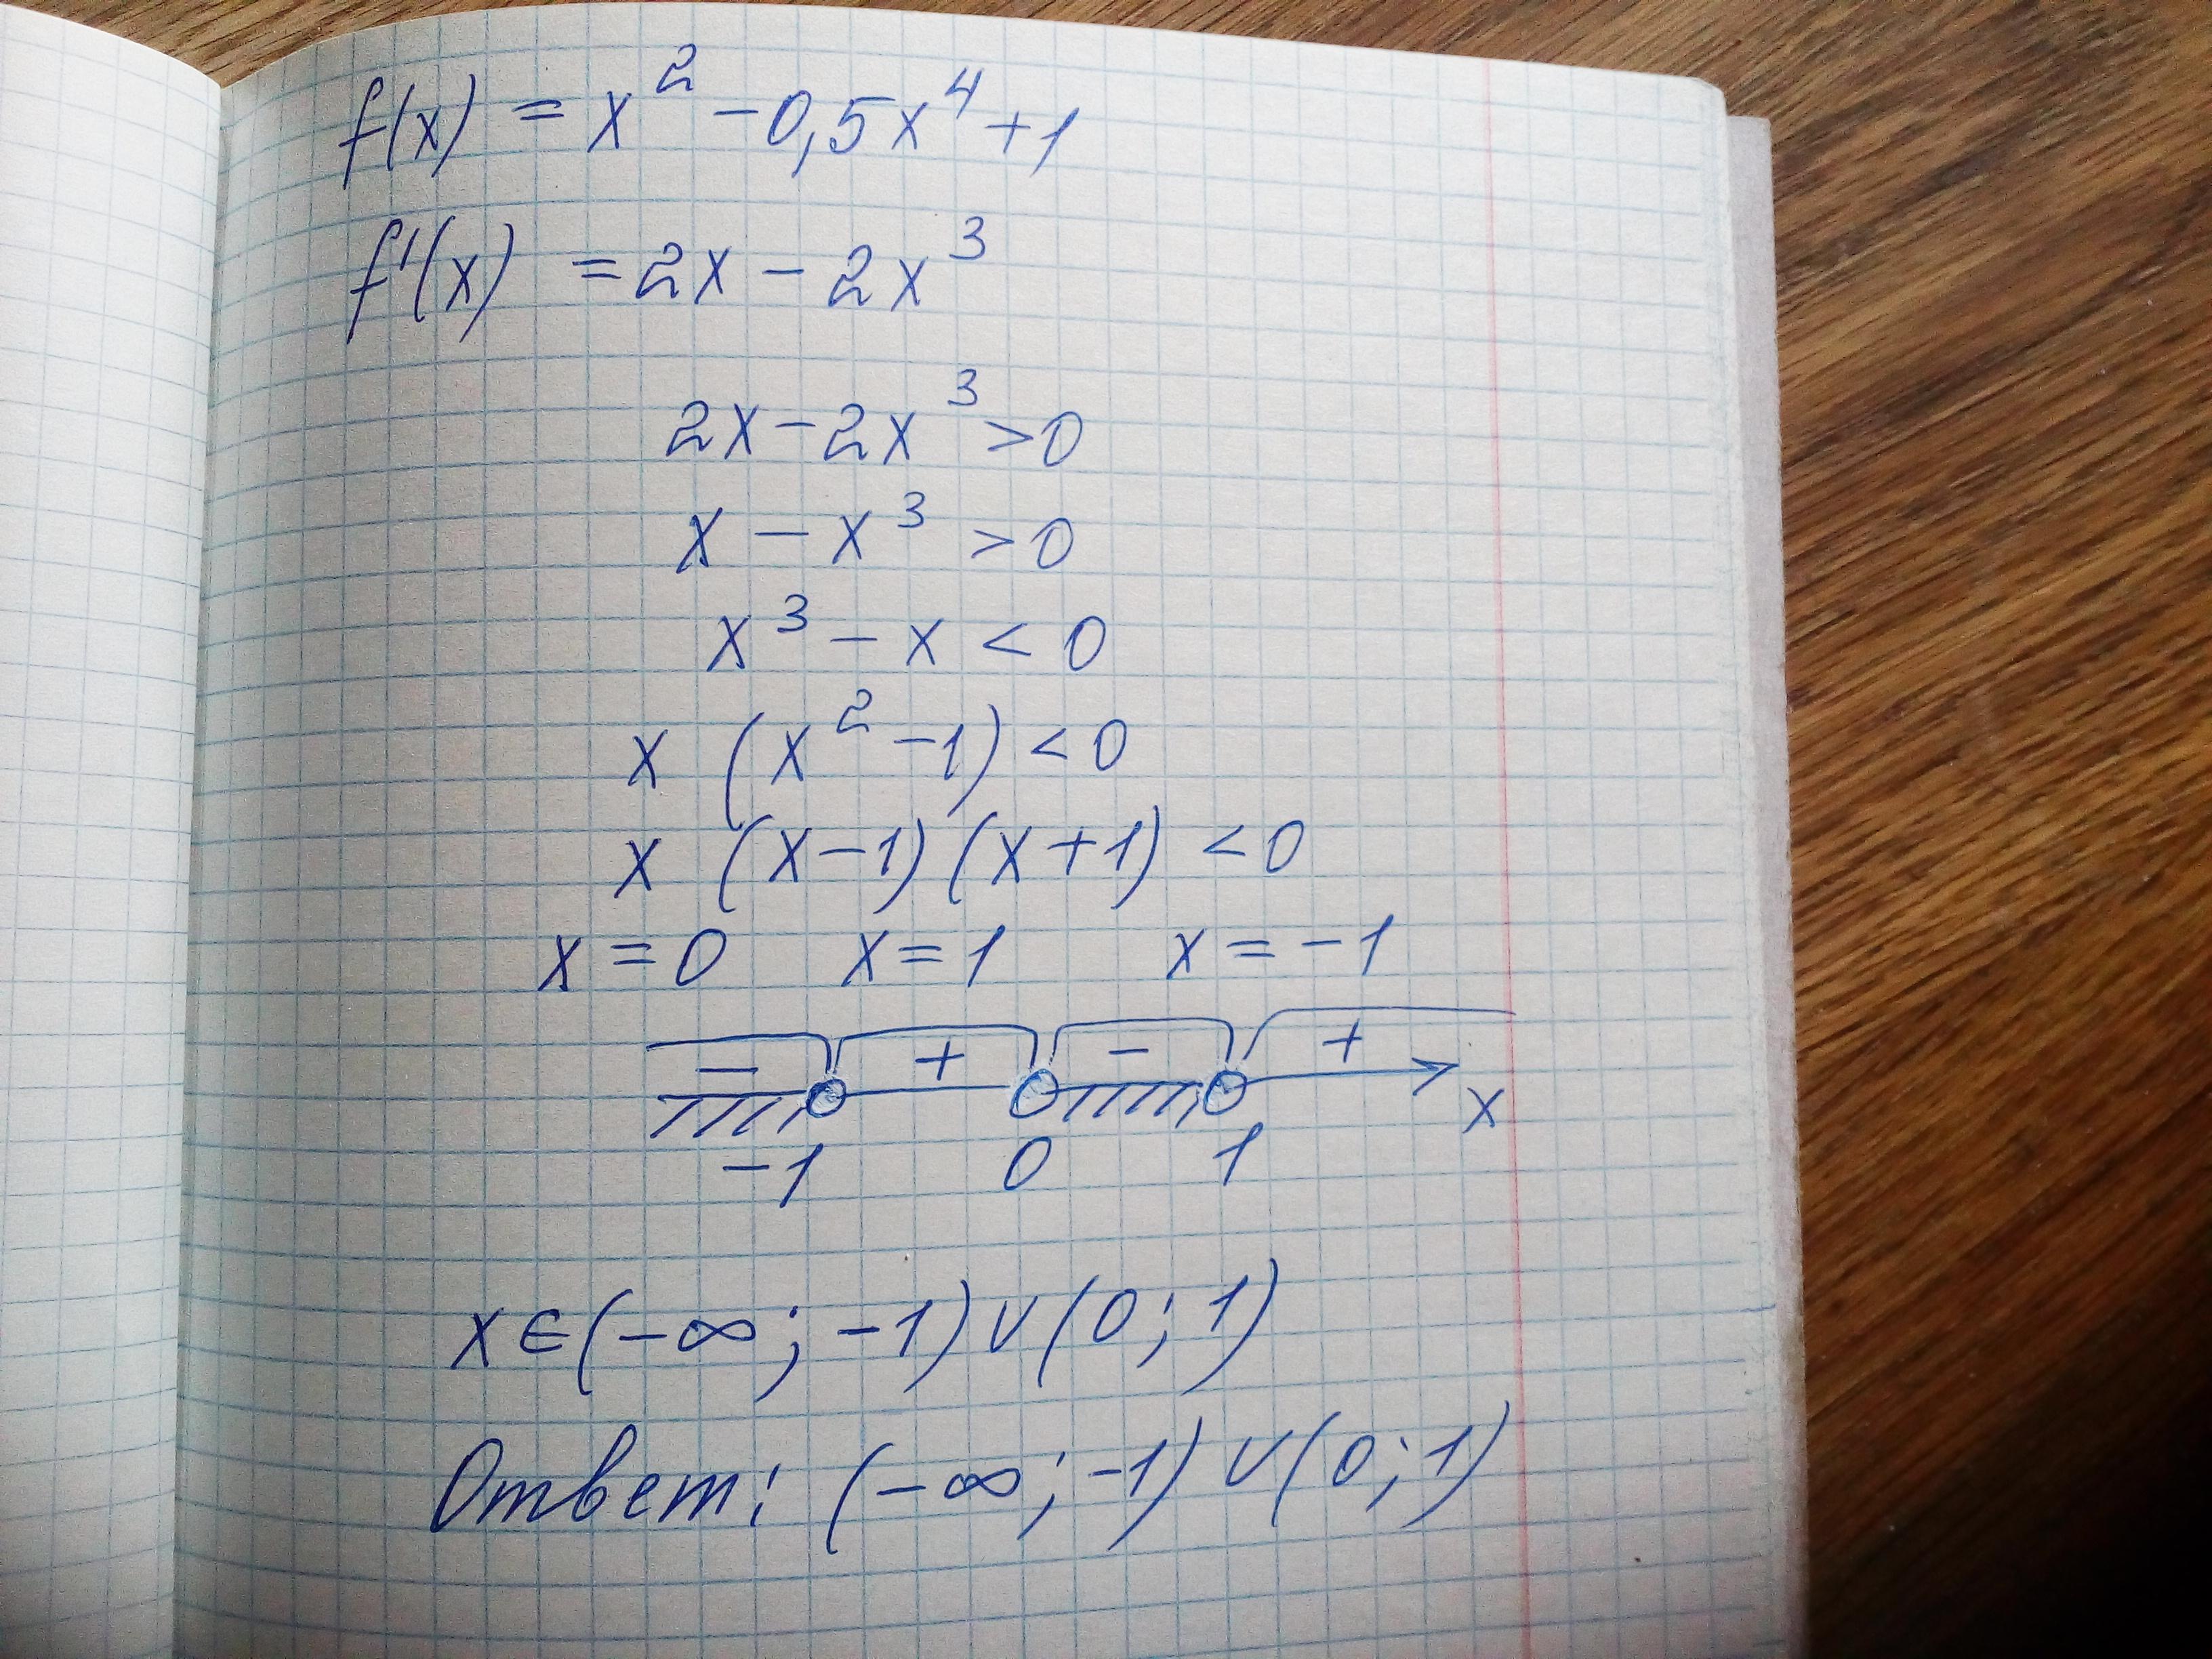 f(x) = x² - 0,5x⁴ + 1
f'(x) = 2x - 2x³
2x - 2x³ > 0
x - x³ > 0
x³ - x < 0
x (x² - 1) < 0
x (x - 1) (x + 1) < 0
x = 0 x = 1 x = -1
- + - +
-1 0 1 x
x ∈ (-∞; -1) ∪ (0; 1)
Ответ: (-∞; -1) ∪ (0; 1)